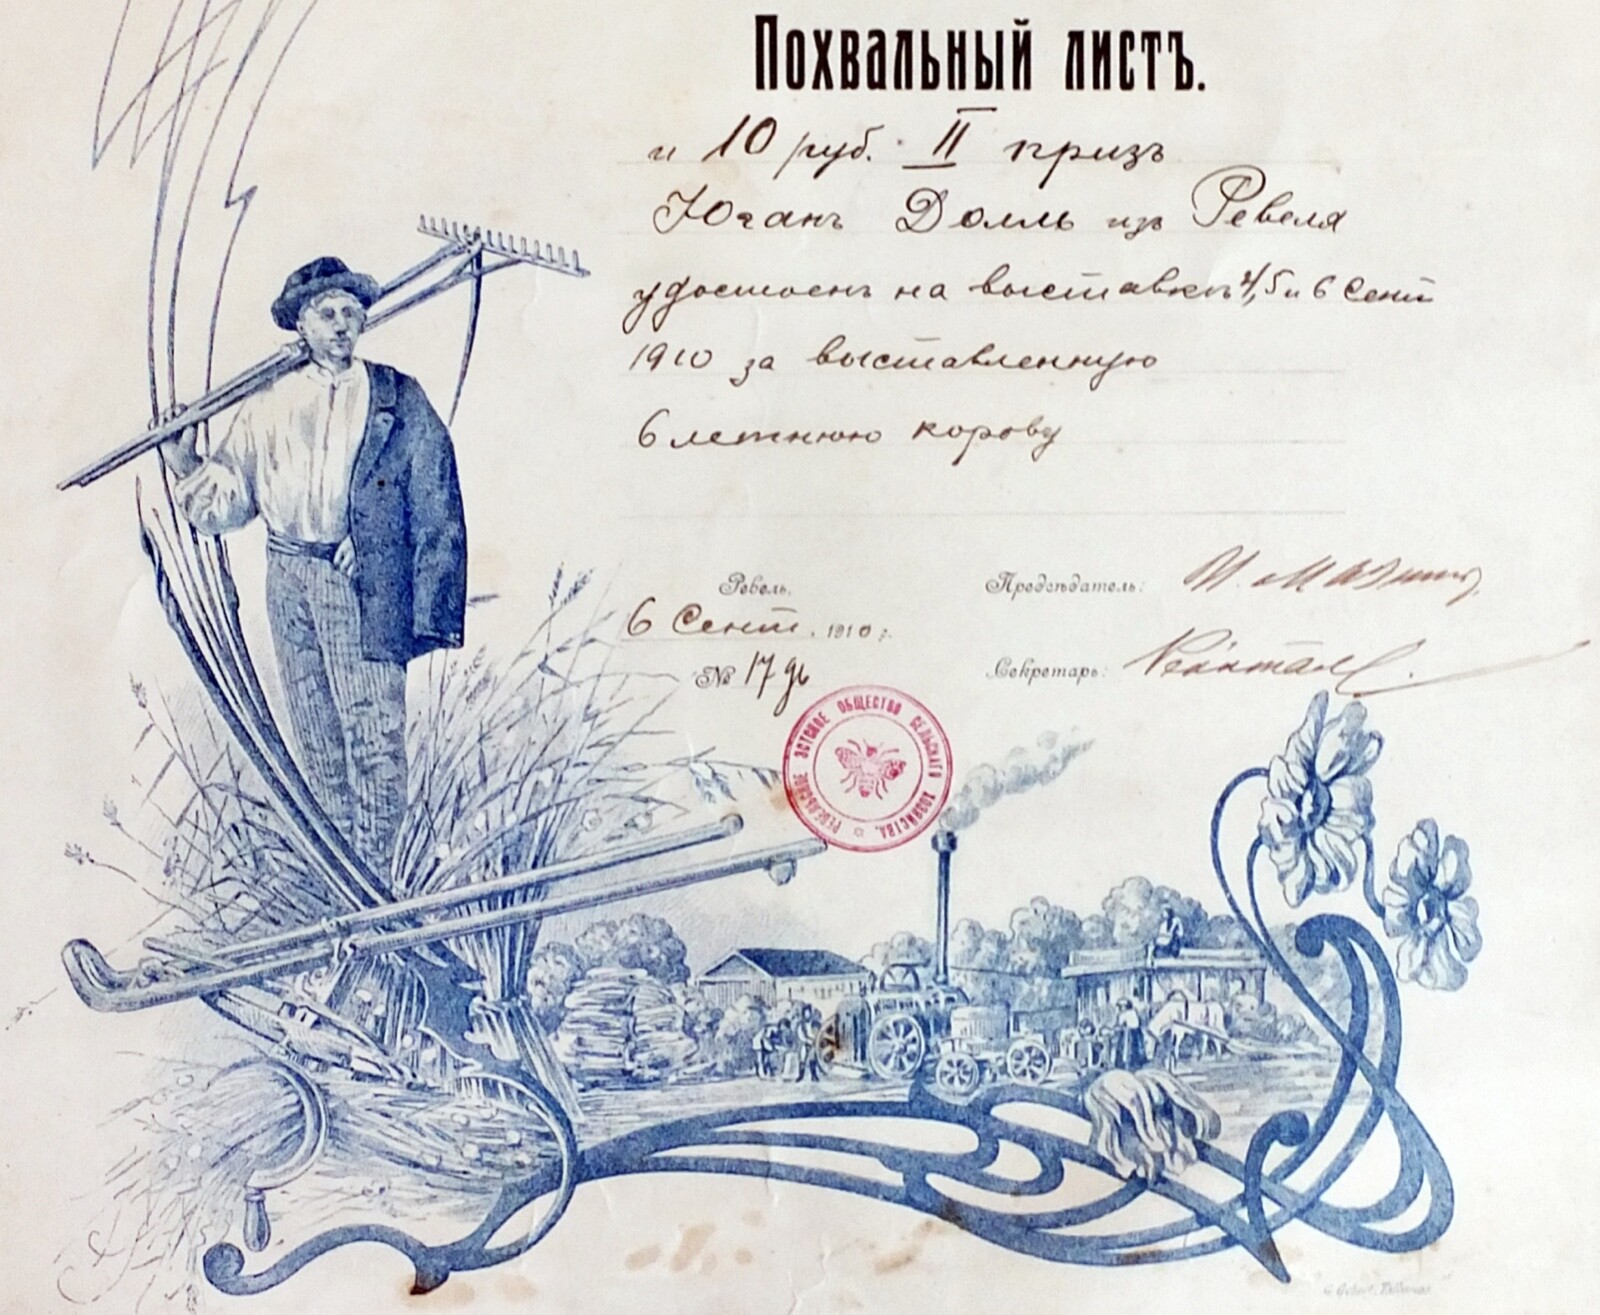 Похвальный листъ.
и 10 руб. II призъ
Юганъ Долль изъ Ревеля
удостоенъ на выставкѣ 4, 5 и 6 Сент
1910 за выставленную
6 летнюю корову
Ревель,
6 Сент. 1910 г.
№ 17
Предсѣдатель:
Секретарь:
РЕВЕЛЬСКОЕ ЭСТСКОЕ ОБЩЕСТВО СЕЛЬСКАГО ХОЗЯЙСТВА.